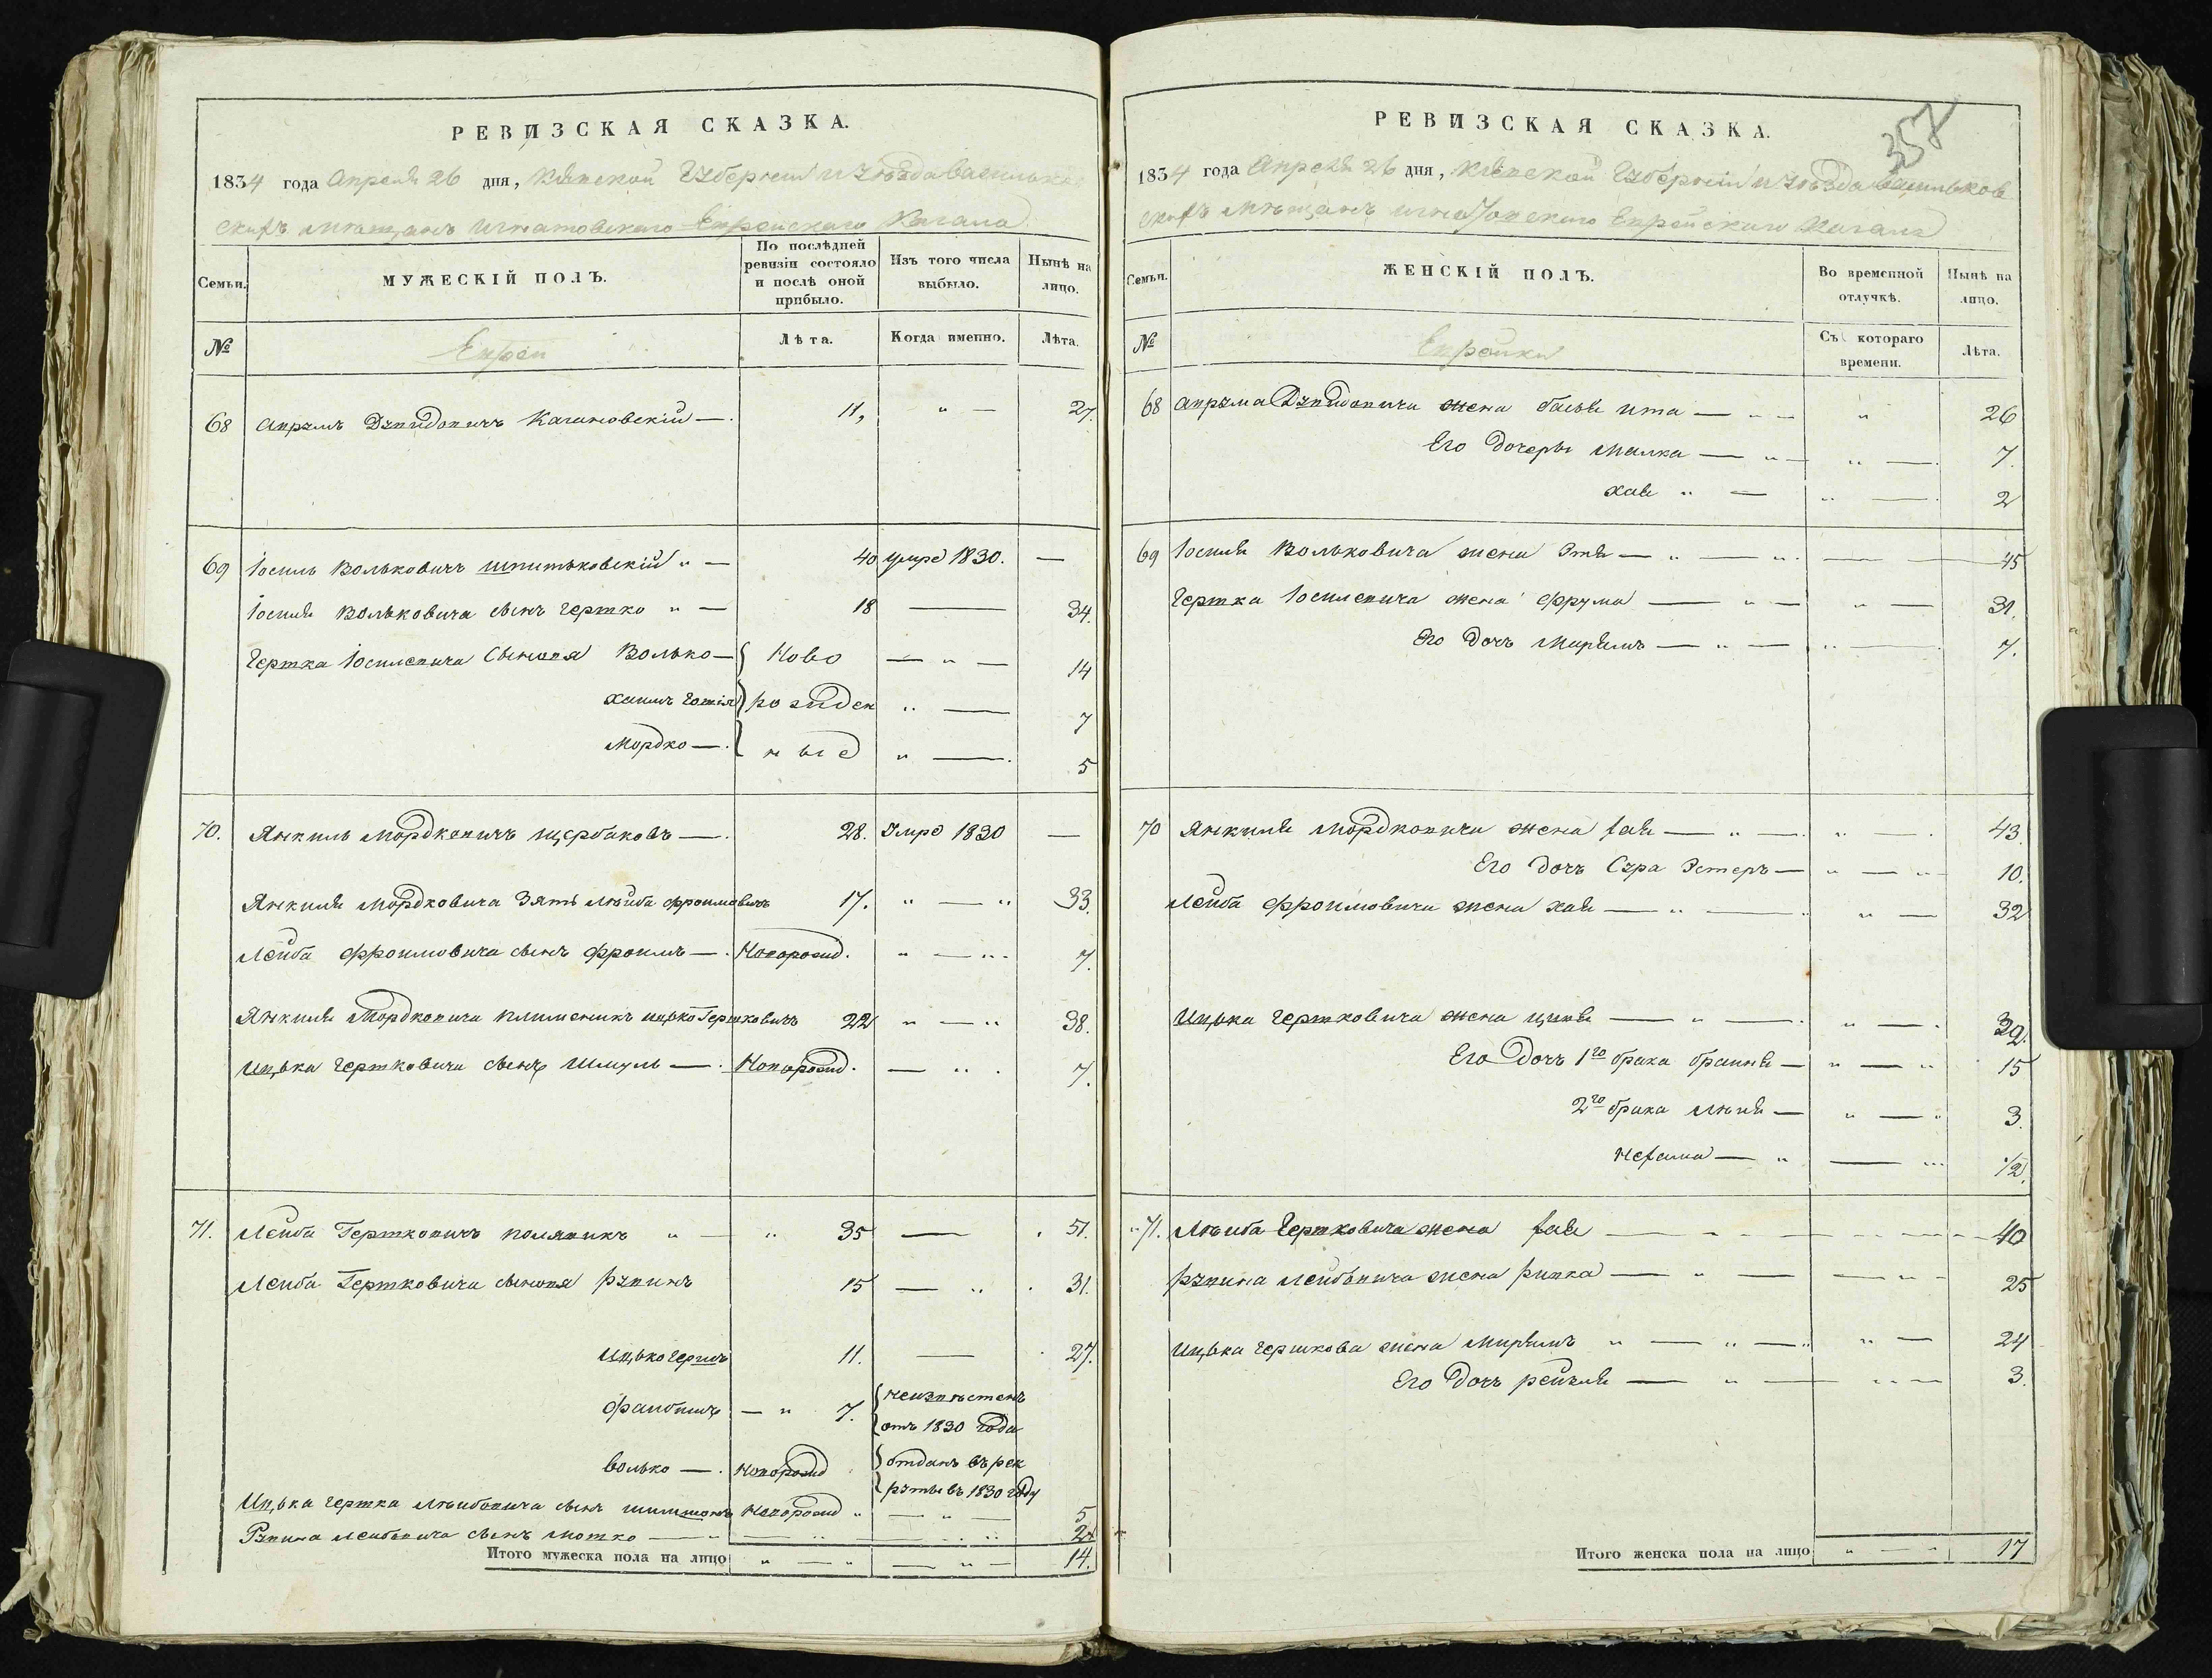 РЕВИЗСКАЯ СКАЗКА.
1834 года Апреля 26 дня, Кіевской Губерніи и уѣзда Васильков
скихъ мѣщанъ Игнатовского Еврейского Кагала
Семьи.
МУЖЕСКІЙ ПОЛЪ.
По послѣдней ревизіи состояло и послѣ оной прибыло.
Изъ того числа выбыло.
Нынѣ на лицо.
№
Евреи
Лѣта.
Когда именно.
Лѣта.
68 Аврумъ Дувидовичъ Кагановскій — 11, " — 27.
69 Іосиль Вольковичъ Шпитьковскій " — 40 умре 1830. —
Іосиля Вольковича сынъ Гертко " — 18 — 34.
Гертка Іосилевича сыновя Волько — Ново — " — 14
Хаимъ рожден " — 7
Мордко — ные " — 5
70. Янкиль Мордковичъ Щербаковъ — 28. Умре 1830 —
Янкиля Мордковича зять Лѣйба Фроимовичъ 17. " — " 33.
Лейба Фроимовича сынъ Фроимъ —Новорожд. " — " 7.
Янкиля Мордковича племеникъ Ицько Гертковичъ 22 " — " 38.
Ицька Гертковича сынъ Шмуль —Новорожд. — " 7.
71. Лейба Гертковичъ Полявикъ " — " 35 — 51.
Лейба Гертковича сыновя Рувинъ 15 — " 31.
Ицько Гершъ 11. — 27.
— " 7. неизвѣстенъ
отъ 1830 года
Волько — Новорожд отданъ въ рек
руты въ 1830 году
Ицька Гертка Лѣибовича сынъ Шимшонъ Новорожд " — " — 5
Рувина Лейбовича сынъ Мотко — " — " — " 2
Итого мужеска пола на лицо " — " — " — 14.
РЕВИЗСКАЯ СКАЗКА.
357
1834 года Апреля 26 дня, Кіевской Губерніи и уѣзда Васильков
скихъ мѣщанъ Игнатовского Еврейского Кагала
Семьи.
ЖЕНСКІЙ ПОЛЪ.
Во временной отлучкѣ.
Нынѣ на лицо.
№
Еврейки
Съ котораго времени.
Лѣта.
68 Аврума Дувидовича жена Бася Ита — " — " 26
Его дочеры Малка — " — " — 7.
Хая " — " — 2
69 Іосиля Вольковича жена Этя — " — " — 45
Гертка Іосилевича жена Фрума — " — " — 31.
Его дочъ Мирямъ — " — " — 7.
70 Янкиля Мордковича жена Хая — " — " — 43.
Его дочъ Сура Эстеръ — " — " 10.
Лейба Фроимовича жена Хая — " — " — 32
Ицька Гертковича жена Ципя — " — " — 32.
Его дочъ 1го брака Брайня — " — " 15
2го брака — " — " 3.
Нехама — " — " 1/2.
71. Лѣиба Гертковича жена Хая — 40
Рувина Лейбовича жена Ривка — " — " — 25
Ицька Гершкова жена Мирямъ " — " — " — 24
Его дочъ Рейзля — " — " — 3.
Итого женска пола на лицо " — " 17